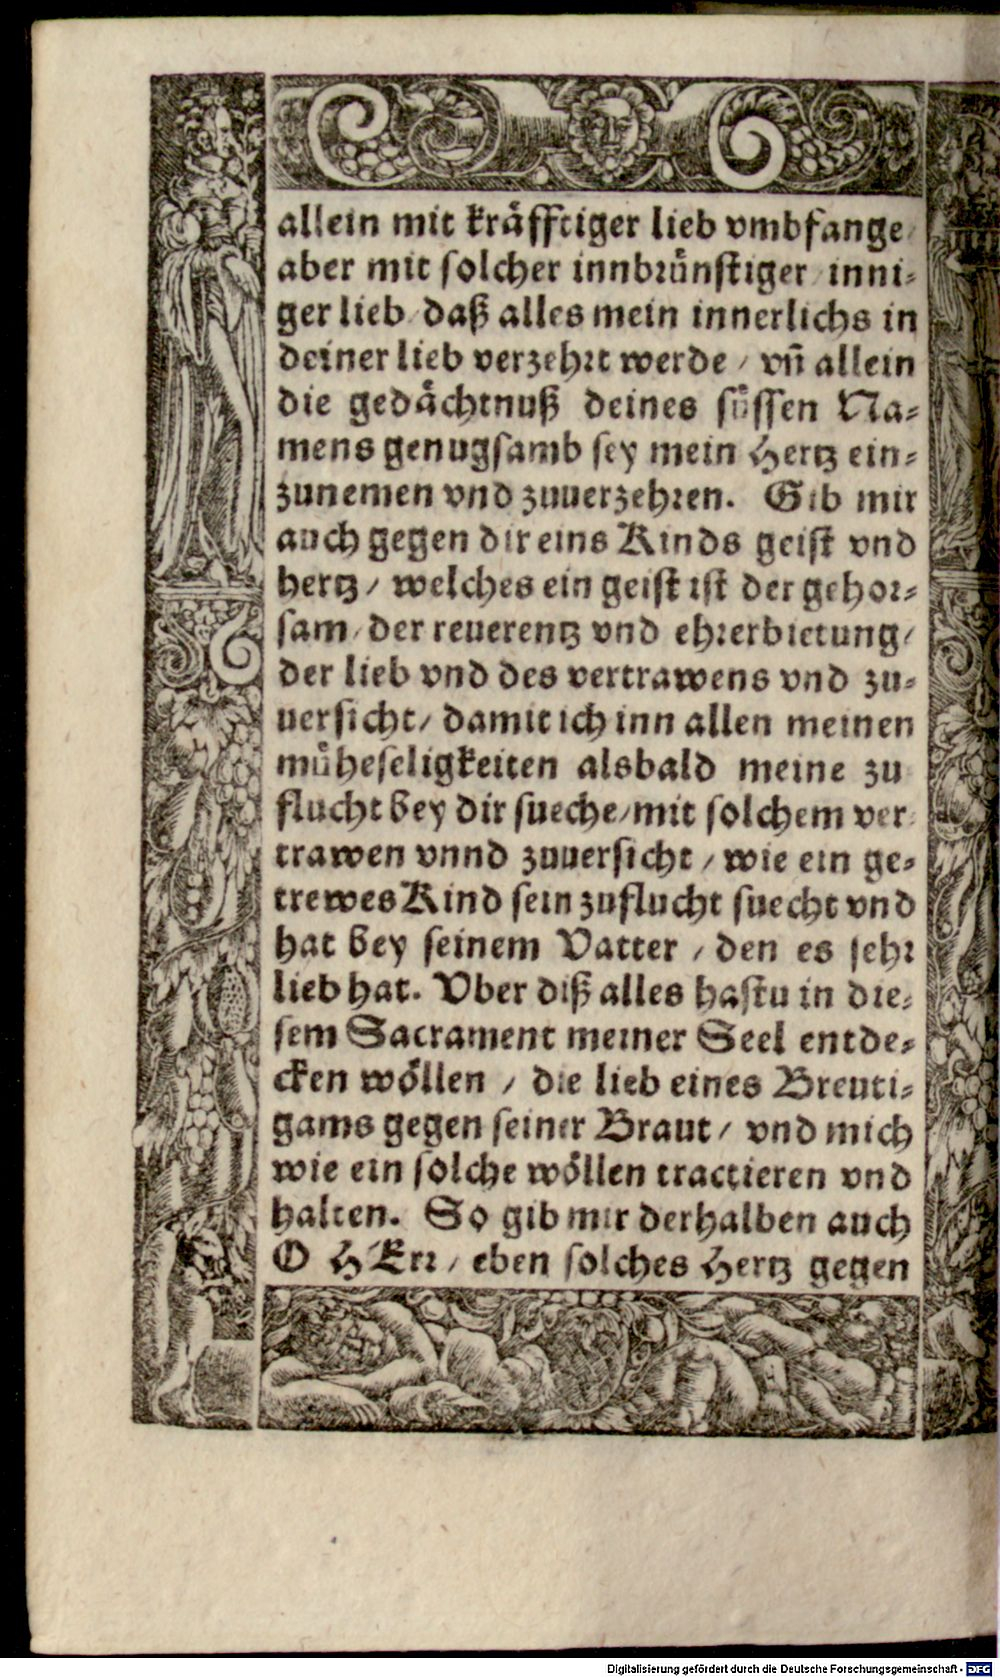 allein mit kräfftiger lieb vmbfange/
aber mit solcher innbrünstiger / inni⸗
ger lieb / daß alles mein innerlichs in
deiner lieb verzehrt werde / vn̄ allein
die gedächtnuß deines süssen Na⸗
mens genugsamb sey mein Hertz ein⸗
zunemen vnd zuuerzehren. Gib mir
auch gegen dir eins Kinds geist vnd
hertz / welches ein geist ist der gehor⸗
sam / der reuerentz vnd ehrerbietung/
der lieb vnd des vertrawens vnd zu⸗
uersicht / damit ich inn allen meinen
müheseligkeiten alsbald meine zu
flucht bey dir sueche / mit solchem ver
trawen vnnd zuuersicht / wie ein ge⸗
trewes Kind sein zuflucht suecht vnd
hat bey seinem Vatter / den es sehr
lieb hat. Vber diß alles hastu in die⸗
sem Sacrament meiner Seel entde⸗
cken wöllen / die lieb eines Breuti⸗
gams gegen seiner Braut / vnd mich
wie ein solche wöllen tractieren vnd
halten. So gib mir derhalben auch
O HErr / eben solches Hertz gegen
Digitalisierung gefördert durch die Deutsche Forschungsgemeinschaft - DFG